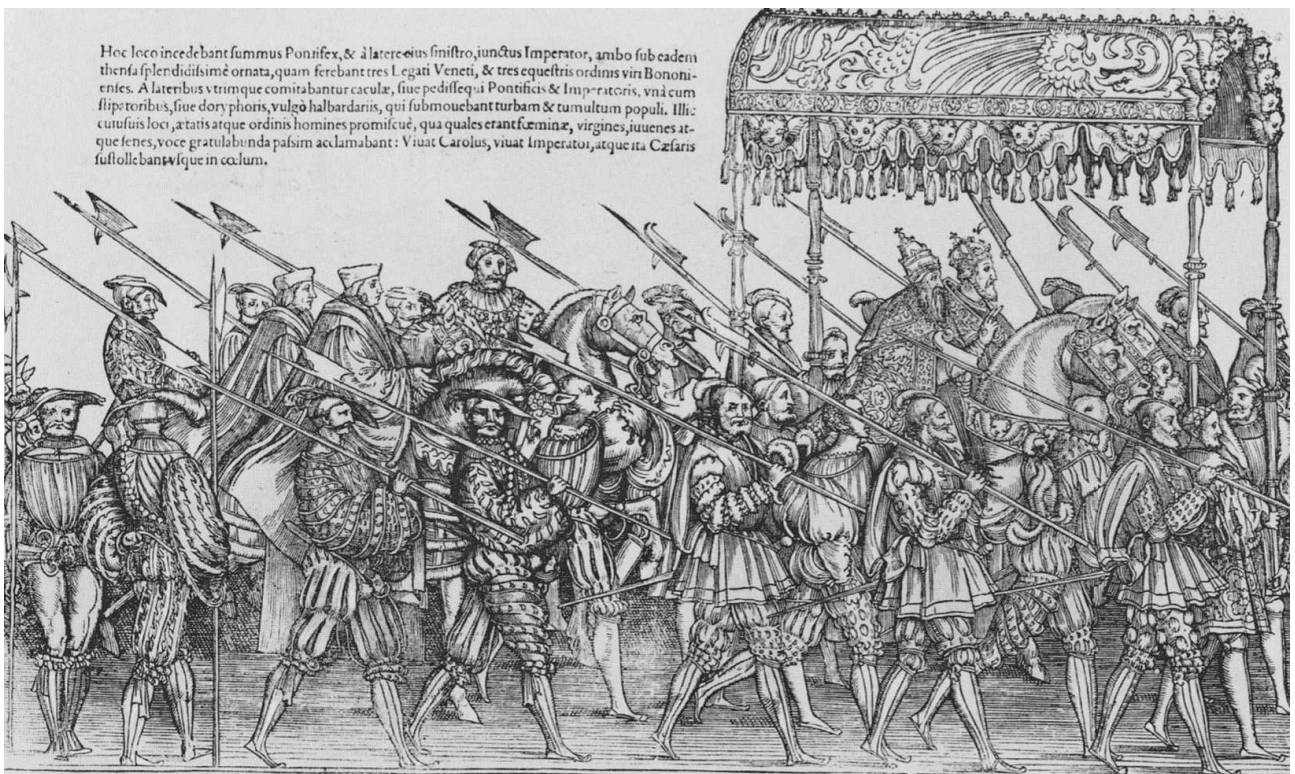 Hoc loco incedebant summus Pontifex, & à latere eius sinistro, iunctus Imperator, ambo sub eadem
thensa splendidissimè ornata, quam ferebant tres Legati Veneti, & tres equestris ordinis viri Bononi-
enses. A lateribus vtrimque comitabantur caculæ, siue pedissequi Pontificis & Imperatoris, vnà cum
stipatoribus, siue doryphoris, vulgò halbardariis, qui submouebant turbam & tumultum populi. Illic
cuiusuis loci, ætatis atque ordinis homines promiscuè, qua quales erant fœminæ, virgines, iuuenes at-
que senes, voce gratulabunda passim acclamabant: Viuat Carolus, viuat Imperator, atque ita Cæsaris
sustollebant vsque in cœlum.